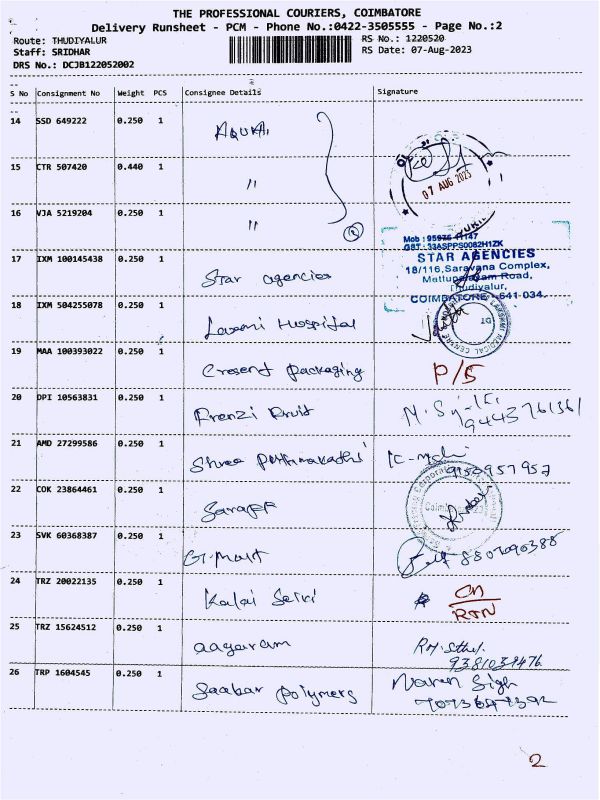 THE PROFESSIONAL COURIERS, COIMBATORE
Delivery Runsheet - PCM - Phone No.:0422-3505555 - Page No.:2
Route: THUDIYALUR RS No.: 1220520
Staff: SRIDHAR RS Date: 07-Aug-2023
DRS No.: DCJB122052002
S No Consignment No Weight PCS Consignee Details Signature
14 SSD 649222 0.250 1
15 CTR 507420 0.440 1 "
07 AUG 2023
16 VJA 5219204 0.250 1 "
GST : 33ASPPS0082H1ZK
17 IXM 100145438 0.250 1 Star agencies STAR AGENCIES
18/116, Saravana Complex,
Mettupalayam Road,
Thudiyalur,
COIMBATORE - 641 034.
18 IXM 504255078 0.250 1 Laxmi Hospital
19 MAA 100393022 0.250 1 Cresent packaging P/5
20 DPI 10563831 0.250 1 Frenzi Fruit 9443761361
21 AMD 27299586 0.250 1 Shree
22 COK 23864461 0.250 1
23 SVK 60368387 0.250 1 G-Mart
24 TRZ 20022135 0.250 1 Kalai Selvi
RTN
25 TRZ 15624512 0.250 1 aagaram
9381039476
26 TRP 1604545 0.250 1 Saabar polymers Naren Sigh
2